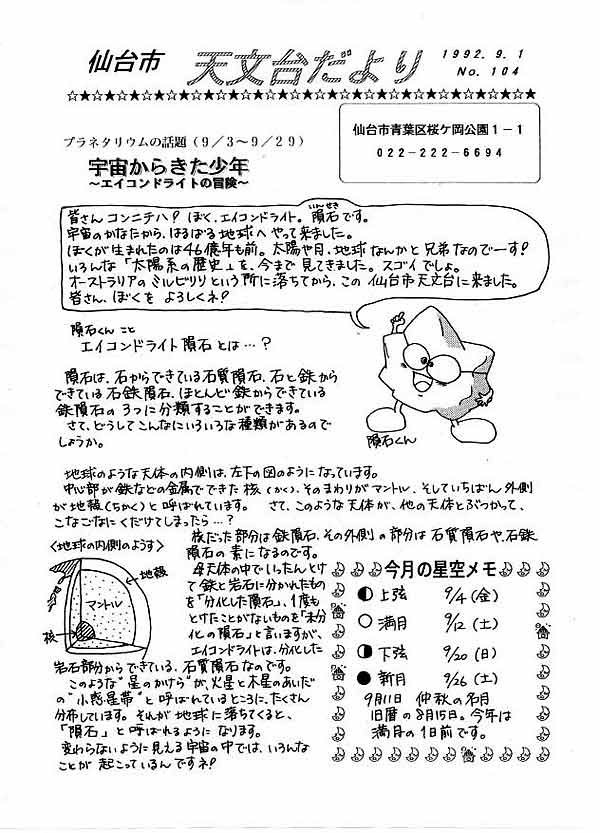 仙台市 天文台だより
1992.9.1
No.104
☆★☆★☆★☆★☆★☆★☆★☆★☆★☆★☆★☆★☆★☆★☆★☆★☆★☆★☆★
仙台市青葉区桜ケ岡公園1-1
022-222-6694
プラネタリウムの話題(9/3~9/29)
宇宙からきた少年
~エイコンドライトの冒険~
皆さんコンニチハ?ぼく、エイコンドライト。隕石(いんせき)です。
宇宙のかなたから、はるばる地球へやって来ました。
ぼくが生まれたのは46億年も前。太陽や月、地球なんかと兄弟なのでーす!
いろんな「太陽系の歴史」を、今まで見てきました。スゴイでしょ。
オーストラリアのミルビリリという所に落ちてから、この仙台市天文台に来ました。
皆さん、ぼくをよろしくネ!
隕石くんこと
エイコンドライト隕石とは…?
隕石くん
隕石は、石からできている石質隕石、石と鉄から
できている石鉄隕石、ほとんど鉄からできている
鉄隕石の3つに分類することができます。
さて、どうしてこんなにいろいろな種類があるので
しょうか。
地球のような天体の内側は、左下の図のようになっています。
中心部が鉄などの金属でできた核(かく)、そのまわりがマントル、そしていちばん外側
が地殻(ちかく)と呼ばれています。 さて、このような天体が、他の天体とぶつかって、
こなごなにくだけてしまったら…?
<地球の内側のようす>
地殻
マントル
核
核だった部分は鉄隕石、その外側の部分は石質隕石や、石鉄
隕石の素になるのです。
母天体の中でいったんとけ
て鉄と岩石に分かれたもの
を「分化した隕石」、1度も
とけたことがないものを「未分
化の隕石」と言いますが、
エイコンドライトは、分化した
岩石部分からできている、石質隕石なのです。
このような"星のかけら"が、火星と木星のあいだ
の"小惑星帯"と呼ばれているところに、たくさん
分布しています。それが地球に落ちてくると、
「隕石」と呼ばれるようになります。
変わらないように見える宇宙の中では、いろんな
ことが起こっているんですネ!
今月の星空メモ
上弦 9/4(金)
満月 9/12(土)
下弦 9/20(日)
新月 9/26(土)
9月11日 仲秋の名月
旧暦の8月15日。今年は
満月の1日前です。